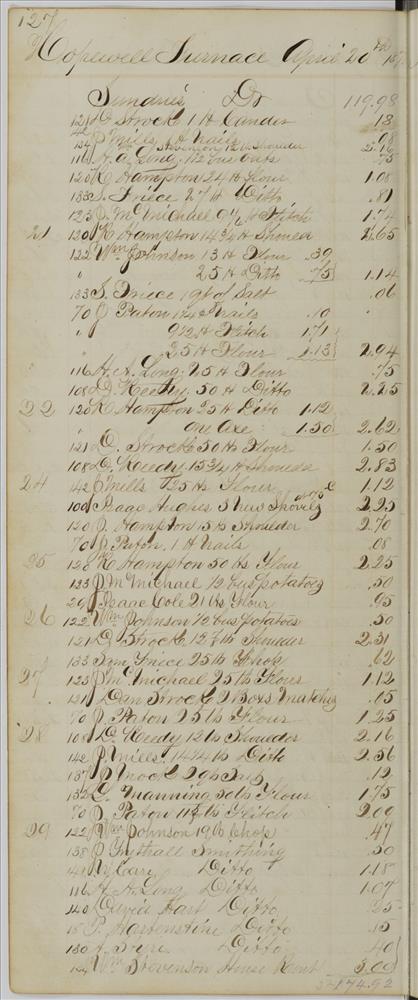 127
Hopewell Furnace April 20th
Sundries Dr 119.98
121 D Strock 1 lt Candes 18
142 J Mills 1 lt Nails .08
154 Wm Stevenson 12 lb Shoulder
116 A. A. Long 1 1/2 bus oats .75
120 K Hampton 24 lt Flour 1.08
133 S. Friece 27 lt Ditto .81
123 J. Mc Michael 9 1/2 lt Flitch 1.74
21 120 K Hampton 14 3/4 lt Shoulder 2.65
122 Wm Johnson 13 lt Flour .39
" 25 lt Ditto .75 1.14
133 S. Friece 1 qt of Salt .06
70 J Paton Nails .10
" 9 1/2 lt Flitch 1.71
" 25 lt Flour 1.13 2.94
116 A. A. Long 25 lt Flour .75
108 D. Keedy 50 lt Ditto 2.25
22 120 K Hampton 25 lt Ditto 1.12
" one Axe 1.50 2.62
121 D. Strock 50 lts Flour 1.50
108 D. Keedy 15 3/4 lt Shoulder 2.83
24 142 J Mills 25 lts Flour 1.12
100 Isaac Hughes 3 Shovels 2.25
120 J. Hampton 15 lb Shoulder 2.70
70 J. Paton 1 lt Nails .08
25 120 K Hampton 50 lbs Flour 2.25
123 J. Mc Michael 1/2 bus potatoes .50
29 Isaac Cole 21 lbs Flour .95
26 122 Wm Johnson 1/2 bus potatoes .50
121 D Strock Shoulder 2.31
133 Sam Friece 25 lb Chop .62
27 123 J Mc Michael 25 lb Flour 1.12
121 Dan Strock 2 Boxs Matches .15
70 J. Paton 25 lb Flour 1.25
28 108 D. Keedy 12 lb Shoulder 2.16
142 J. Mills 14 1/4 lb Ditto 2.56
137 J Mock .12
132 C. Manning 50 lb Flour 1.75
70 J Paton Flitch 2.09
29 122 Wm Johnson 19 lb Chop .47
138 J Guthall Smithing .50
Ditto 1.18
116 A. A. Long Ditto 1.07
140 David Hart Ditto .25
P. Hartenstine Ditto .15
130 Ditto .40
154 Wm Stevenson House Rent 3.00
174.92